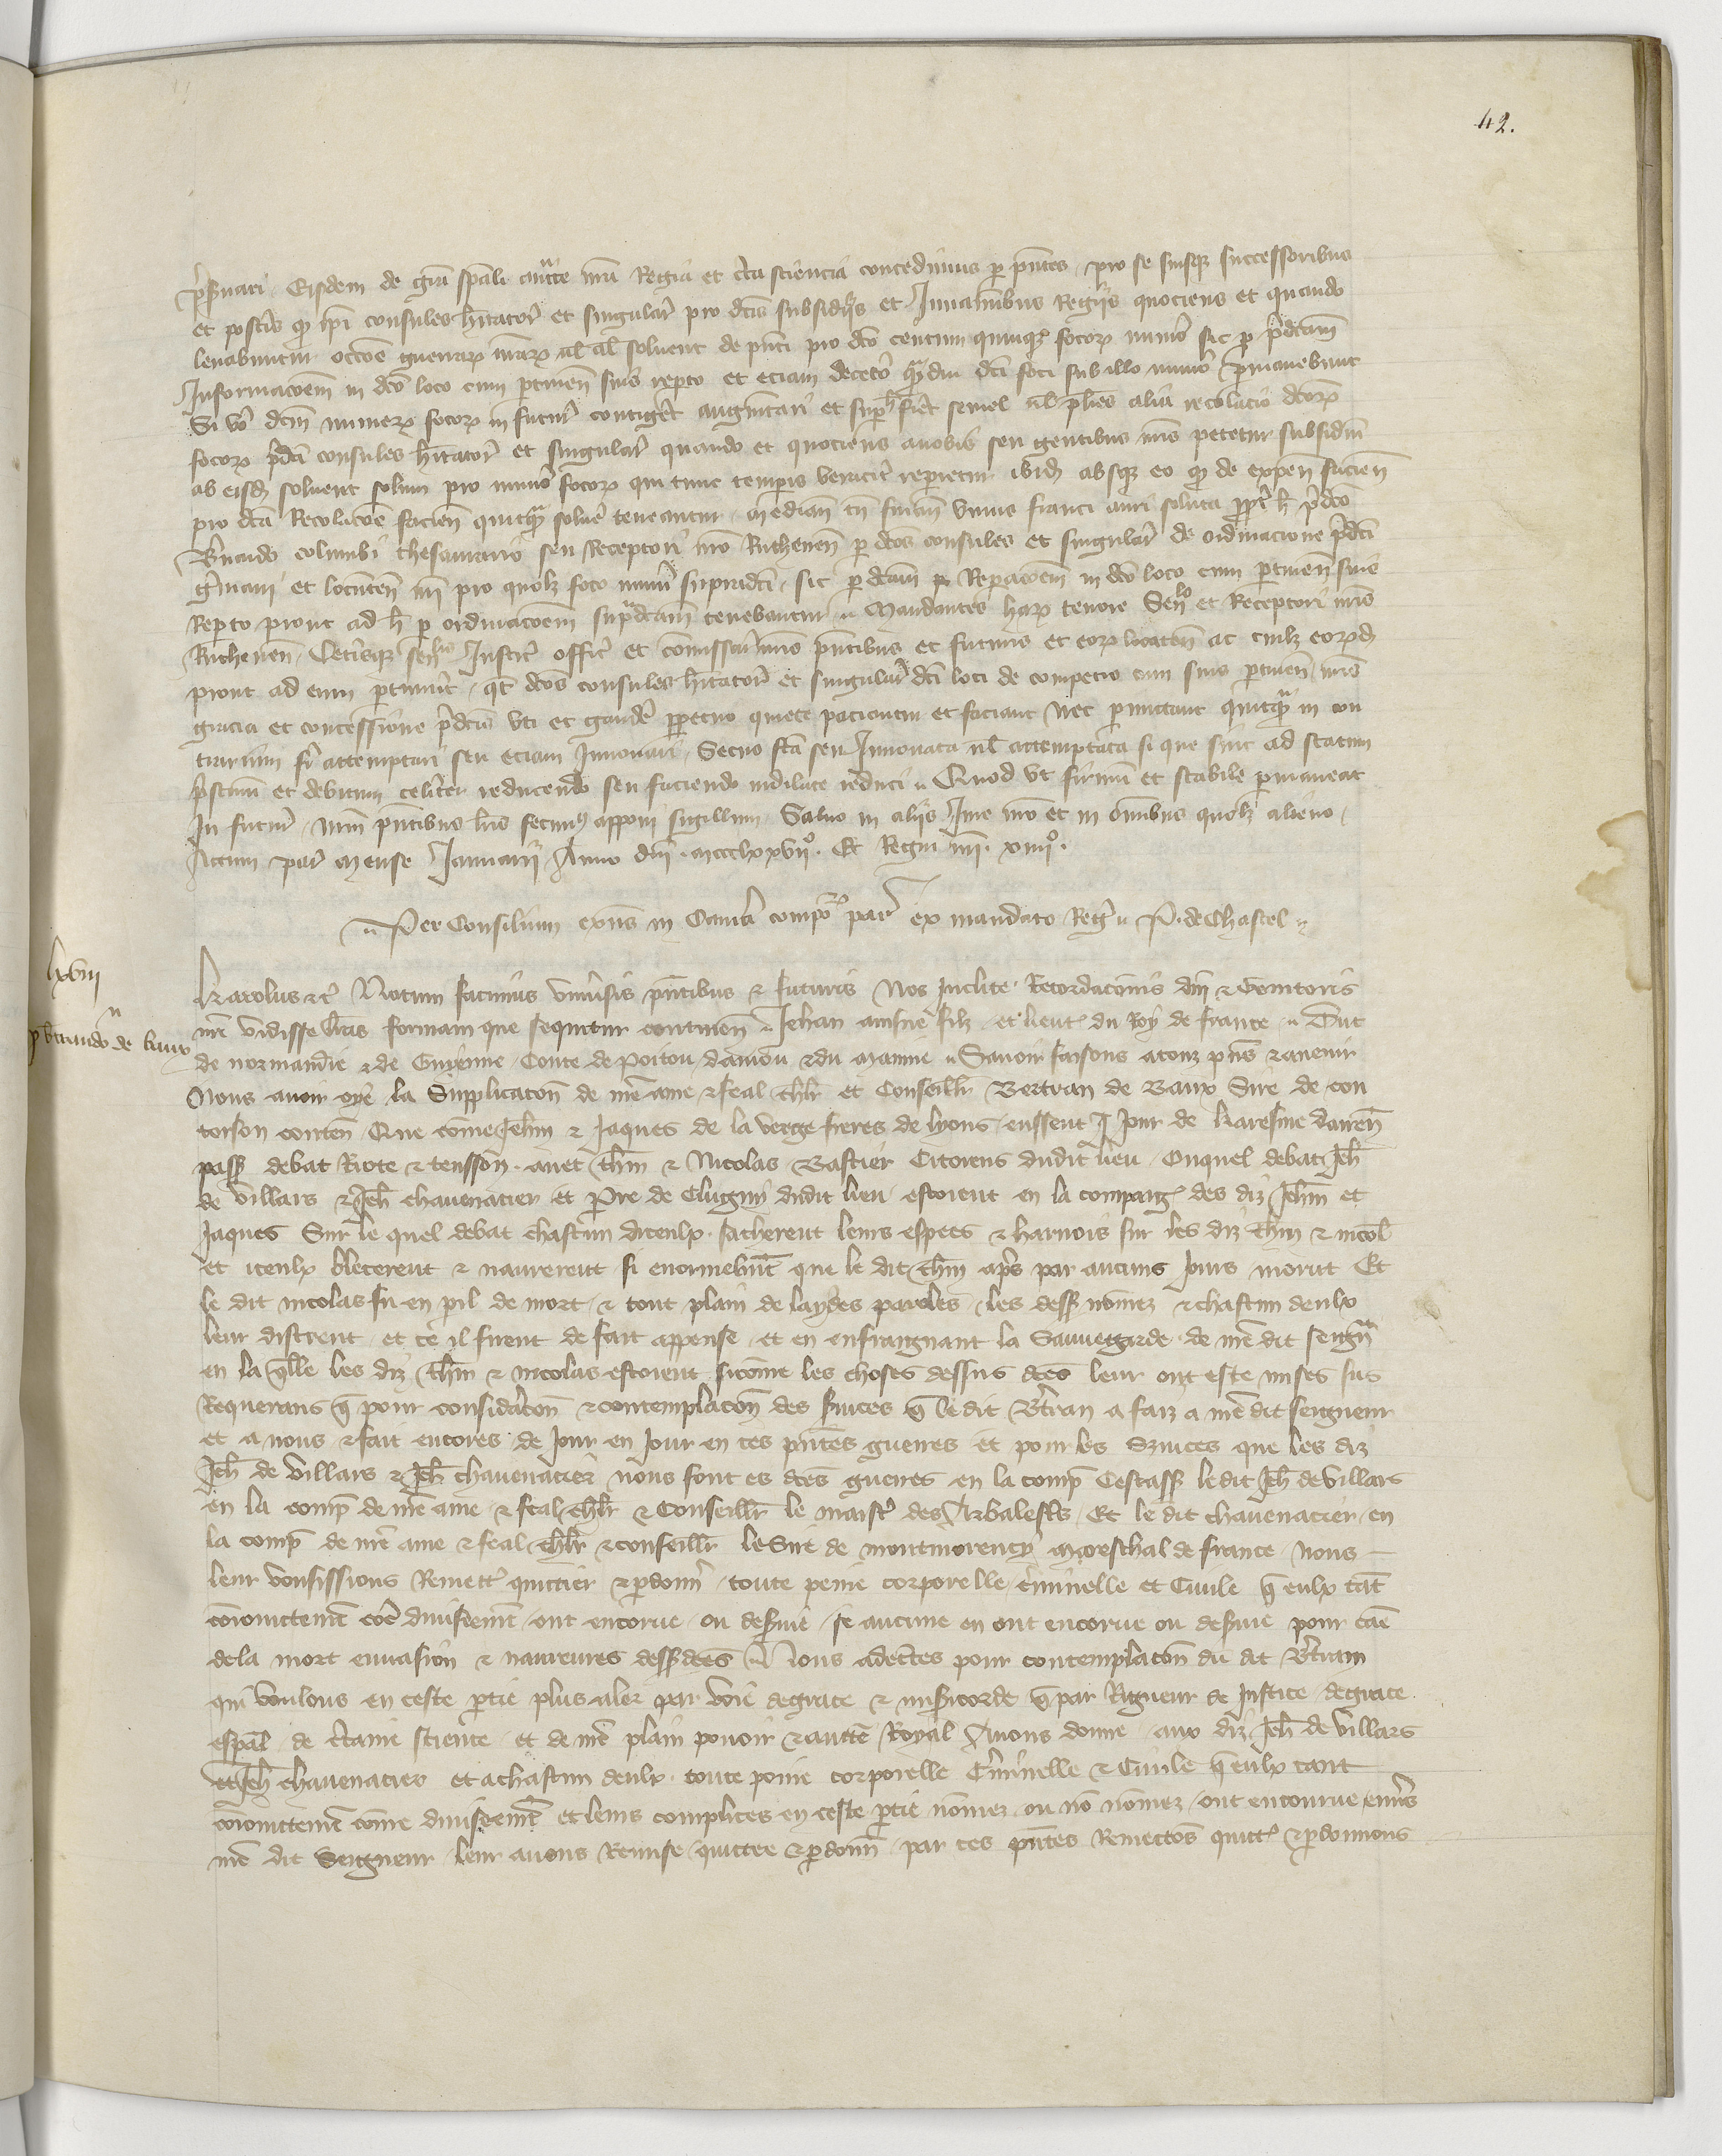 42.
p̃suari Eisdem de gr̃a sp̃ali auctte nr̃a Regia et c̃ta sciencia concedimus p p̃ntes pro se suisque successoribus
et postris q̃ ip̃i consules hit̃ator̃ et singular̃ pro dc̃is subsidiis et Juuaminibus Regiis quociens et quando
leuabuntur occõe guerrar̃ nr̃ar̃ soluent de p̃nti pro dc̃o centum quinqz focor̃ numo sic p p̃dc̃am
Informac̃oem in dc̃o loco cum ptinen̄ suis repto et eciam decet̃o q̃diu dc̃i foci sub illo num̃o pmanebunt
Si vo dc̃m numer̃ focor̃ in futur̃ contiget augm̃tari et sup h̃ fiet semel ul̃ pl̃ies alia recolacio dc̃or̃
focor̃ p̃dc̃i consules hit̃ator̃ et singular̃ quando et quociens a nobis seu gentibus nr̃is petetur subsidiũ
ab eisd̃ soluent solum pro num̃o focor̃ qui tunc tempis veracit̃ repietur ibid̃ absqz eo q̃ de expen̄ facien̄
pro dc̃a Recolac̃oe facien̄ quitq̃ soluẽ teneantur median̄ tñ summ̃ unius franci auri soluta ppt̃ h̃ p̃dc̃o
Br̃nardo columbi thesaurario seu Receptori nr̃o Ruthenen̄ p dc̃os consules et singular̃ de ordinacione p̃dc̃i
gr̃mani et locuten̄ nr̃i pro quolz foco num̃i supradc̃i sic p dc̃am Reparac̃oem in dc̃o loco cum ptinen̄ suis
Repto prout ad h̃ p ordinac̃oem sup̃dc̃am tenebantur Mandantes har̃ tenore Sen̄lo et Receptori nr̃is
Ruthenen̄ Cet̃isqz sen̄lis Justic̃ offic̃ et com̃issar̃ nr̃is p̃ntibus et futuris et eor̃ locaten̄ ac cuilz eor̃d̃
prout ad eum ptinuit qt̃ dc̃os consules hit̃ator̃ et singular̃ dc̃i loci de competro cum suis ptinen̄ nr̃is
gracia et concessione p̃dc̃is uti et gaudẽ ppetuo quiete paciantur et faciant Nec pmittant quitq̃ in con
trarium fi attemptari seu eciam Innouari Secus fc̃a seu Innouata ul̃ attemptata si que sint ad statum
p̃stinũ et debitum celit̃er reducendo seu faciendo indilate reduci Quod vt firmũ et stabile pmaneat
In futur̃ nr̃m p̃ntibus lr̃is fecimus apponi sigillum Saluo in aliis Jure nr̃o et in om̃ibus quolz alieno
Actum par̃ mense Januarii Anno dn̄i mccclxxvij° Et Regni nr̃i xiiij°
Per Consilium exñs in Cam̃a compor̃ par̃ ex mandato Reg̃ P. de Chastel
lxviii
p bertrando de baux
Karolus etc̃ Notum facimus vniũsis p̃ntibus et futuris Nos Inclite Recordac̃onis dn̄i et Genitoris
nr̃i vidisse lr̃as formam que sequitur continen̄ Jehan ainsne filz et lieut̃ du Roy de france Duc
de normandie et de Guyenne Conte de Poitou danjou et du Maine Sauoir faisons a touz p̃ns et auenir
Nous auoir oye la Supplicac̃on de nr̃e ame et feal chlr̃ et Conseillr̃ Bertran de Baux Sire de con
torson conten̄ Que com̃e Jehan et Jaques de la verge freres de lyons eussent I Jour de karesme darren̄
passe debat Riote et tensson auec thm̃ et Nicolas Bastier Citoiens dudit lieu Ouquel debat Jeh̃
de villars et Jeh̃ chauenacier et Pre de Clugny dudit lieu estoient en la compaig̃ des diz Jehan et
Jaques Sur le quel debat chascun diceulx sacherent leurs espees et harnois sur les diz thm̃ et nicol̃
et iceulx blecerent et naurerent si enormem̃t que le dit thm̃ apres par aucuns Jours morut Et
le dit nicolas fu en pil de mort et tout plain de laydes paroles les dess nomez et chascun deulx
leur distrent et ce il firent de fait appense et en enfraignant la Sauuegarde de nr̃e dit seign̄r
en la q̃lle les diz thm̃ et nicolas estoient sicom̃e les choses dessus dc̃es leur ont este mises sus
Requerans q̃ pour considerac̃on et contemplac̃on des s̃uices q̃ le dit Br̃tran a faiz a nr̃e dit seigneur
et a nous et fait encores de Jour en Jour en ces p̃ntes guerres et pour les Seruices que les diz
Jeh̃ de villars et Jeh̃ chauenacier nous font es dc̃es guerres en la comp̃ Cestass le dit Jeh̃ de villars
en la comp̃ de nr̃e ame et feal chlr̃ et Conseillr̃ le maist̃ des Arbalestr̃s Et le dit chauenacier en
la comp̃ de nr̃e ame et feal chlr̃ et conseillr̃ le Sire de montmorency mareschal de france Nous
leur vousissions Remett̃ quicter et pdonn̄ toute peine corporelle criminelle et Ciuile q̃ eulx tãt
conioinctem̃t com̃e diuisem̃t ont encorue ou des̃uie se aucune en ont encorue ou des̃uie pour cãe
de la mort enuasion et naureures dess dc̃es Nous adc̃ertes pour contemplac̃on du dit Br̃tram
qui voulons en ceste ptie plus aler par voie de grace et mis̃icorde q̃ par Rigueur de Justice de grace
esp̃al de c̃taine science et de nr̃e plain pouoir et auctẽ Royal Auons donne aux diz Jeh̃ de villars
et Jeh̃ chauenacier et a chascun deulx toute peine corporelle Criminelle et Ciuile q̃ eulx tant
conioinctem̃t com̃e diuisem̃t et leurs complices en ceste ptie nom̃ez ou nõ nom̃ez ont encourue enũs
nr̃e dit Seigneur leur auons Remise quictee et pdonn̄ par ces p̃ntes Remectõs quict̃ et pdonnons